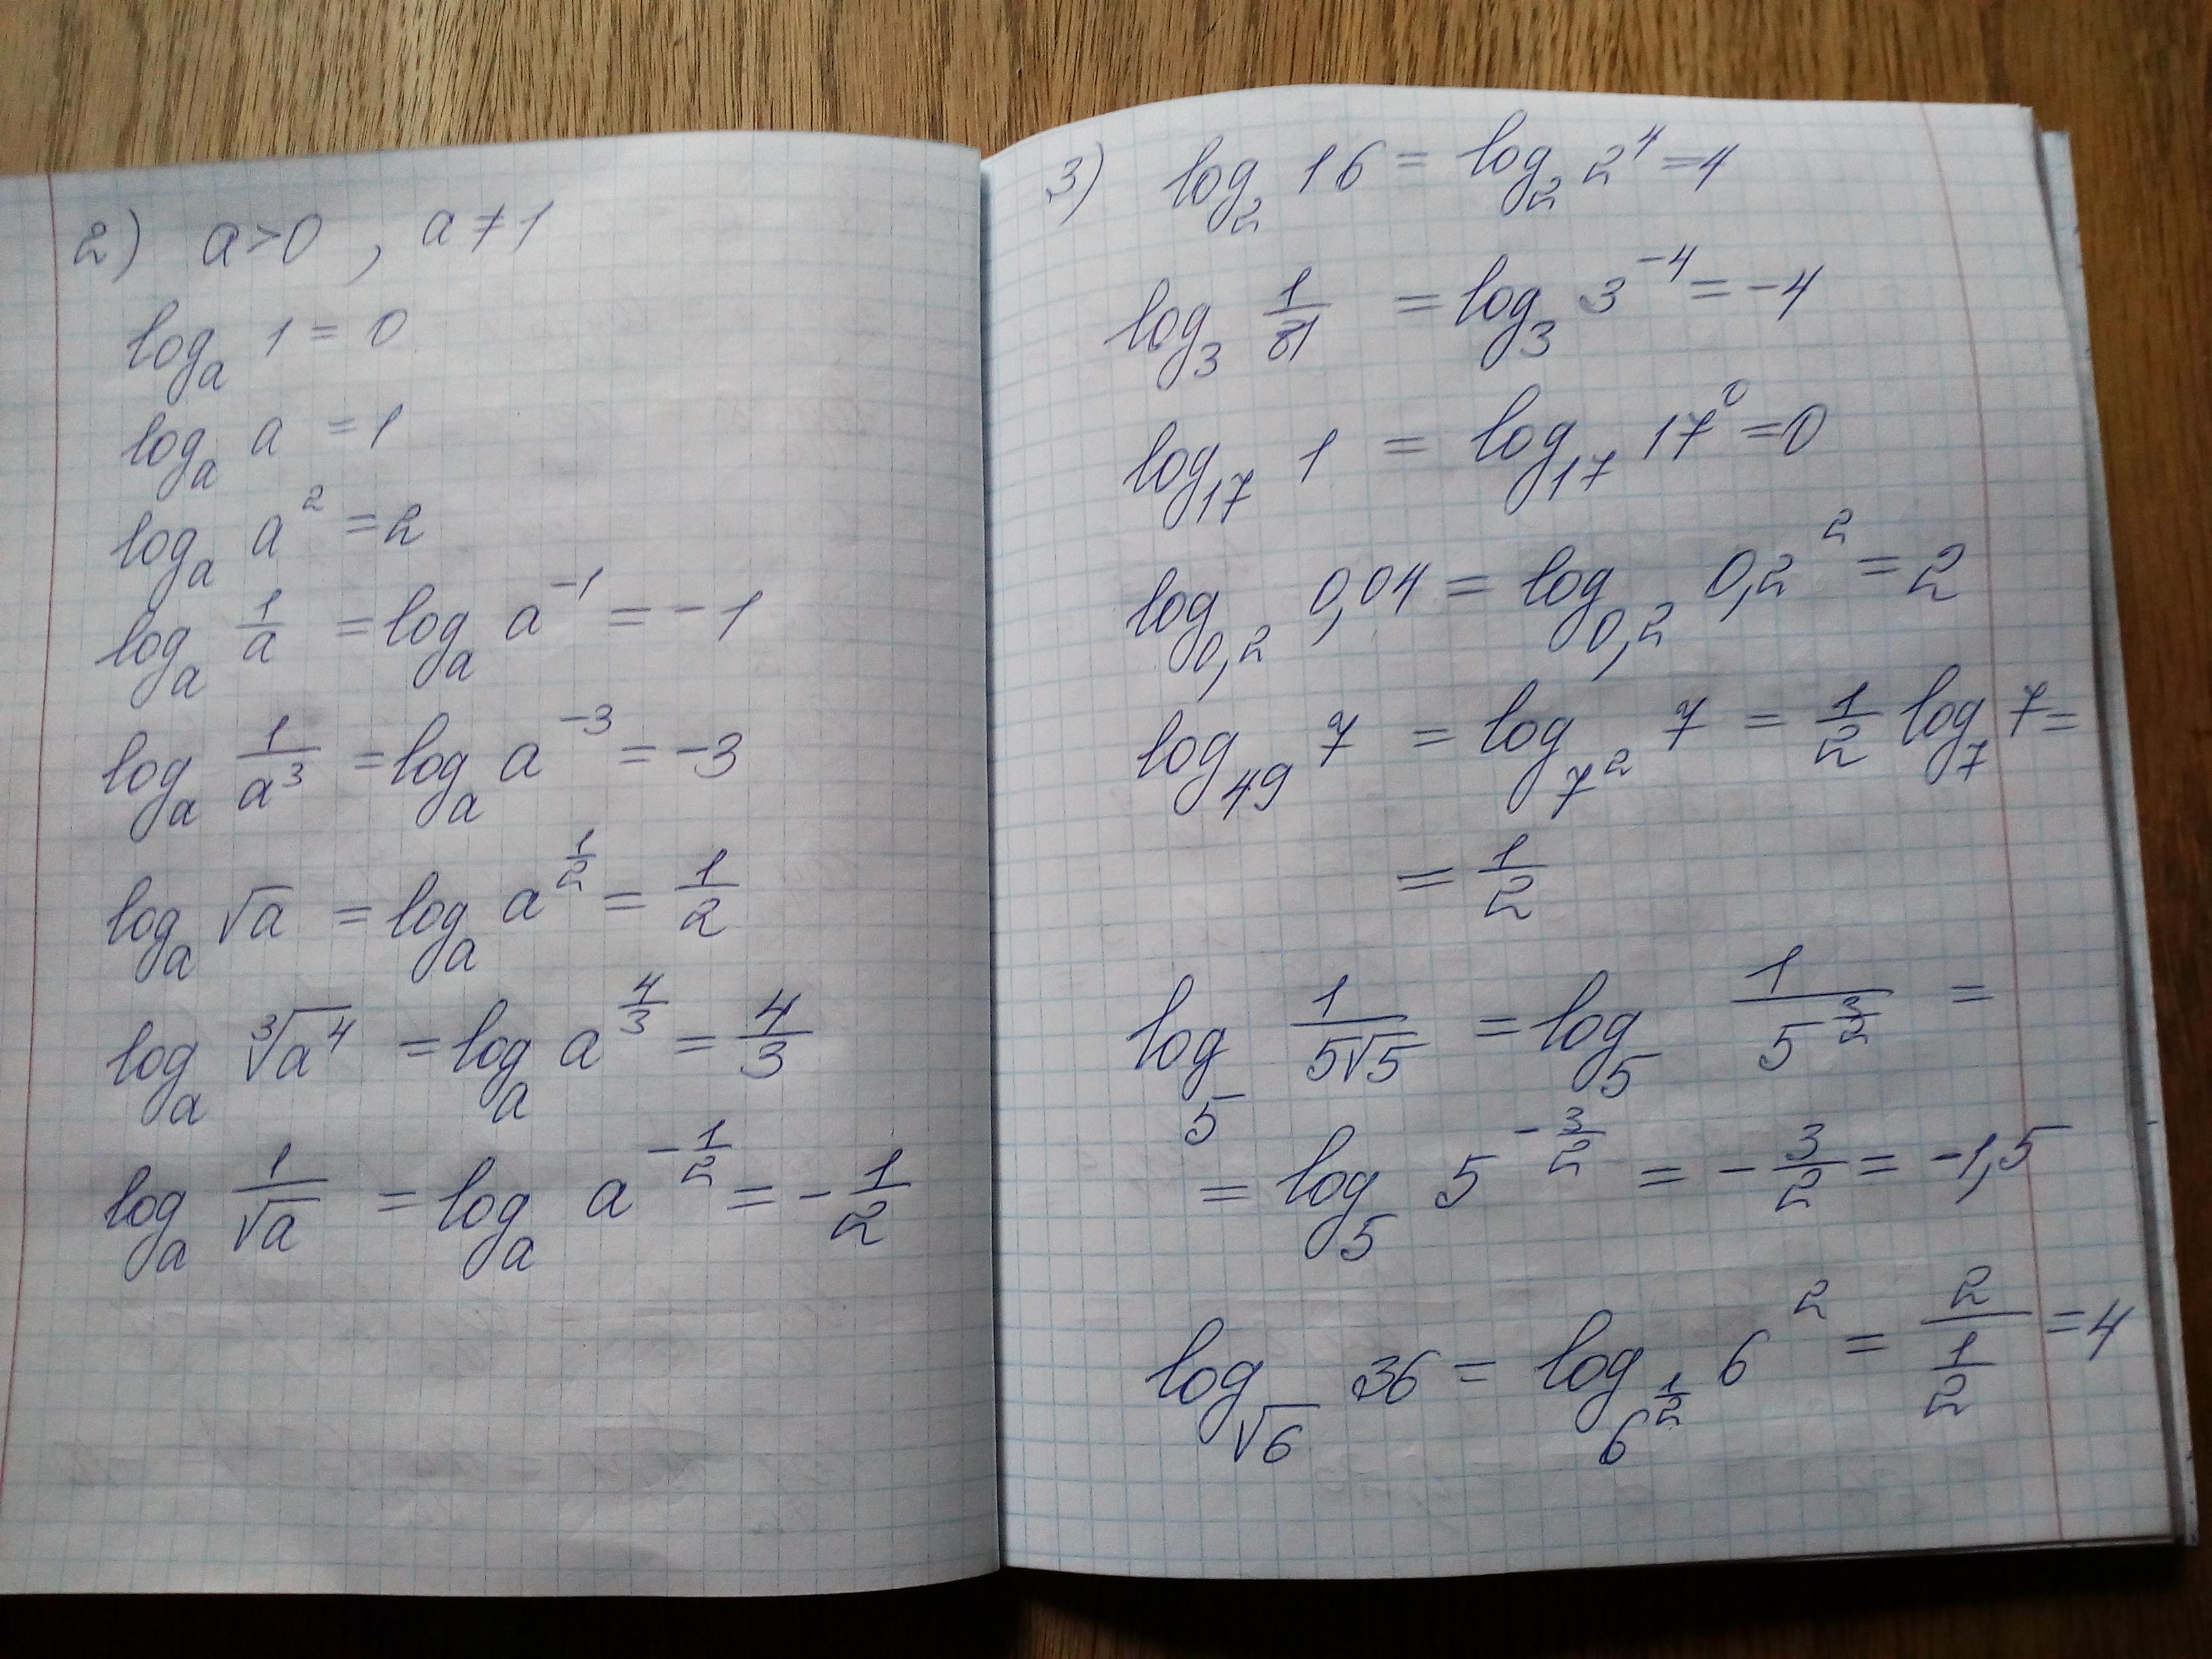 2) a>0, a≠1
logₐ 1 = 0
logₐ a = 1
logₐ a² = 2
logₐ 1/a = logₐ a⁻¹ = -1
logₐ 1/a³ = logₐ a⁻³ = -3
logₐ √a = logₐ a^(1/2) = 1/2
logₐ ∛a⁴ = logₐ a^(4/3) = 4/3
logₐ 1/√a = logₐ a^(-1/2) = -1/2
3) log₂ 16 = log₂ 2⁴ = 4
log₃ 1/81 = log₃ 3⁻⁴ = -4
log₁₇ 1 = log₁₇ 17⁰ = 0
log_0,2 0,04 = log_0,2 0,2² = 2
log₄₉ 7 = log_7² 7 = 1/2 log₇ 7 =
= 1/2
log₅ 1/(5√5) = log₅ 1/5^(3/2) =
= log₅ 5^(-3/2) = -3/2 = -1,5
log_√6 36 = log_6^(1/2) 6² = 2/(1/2) = 4